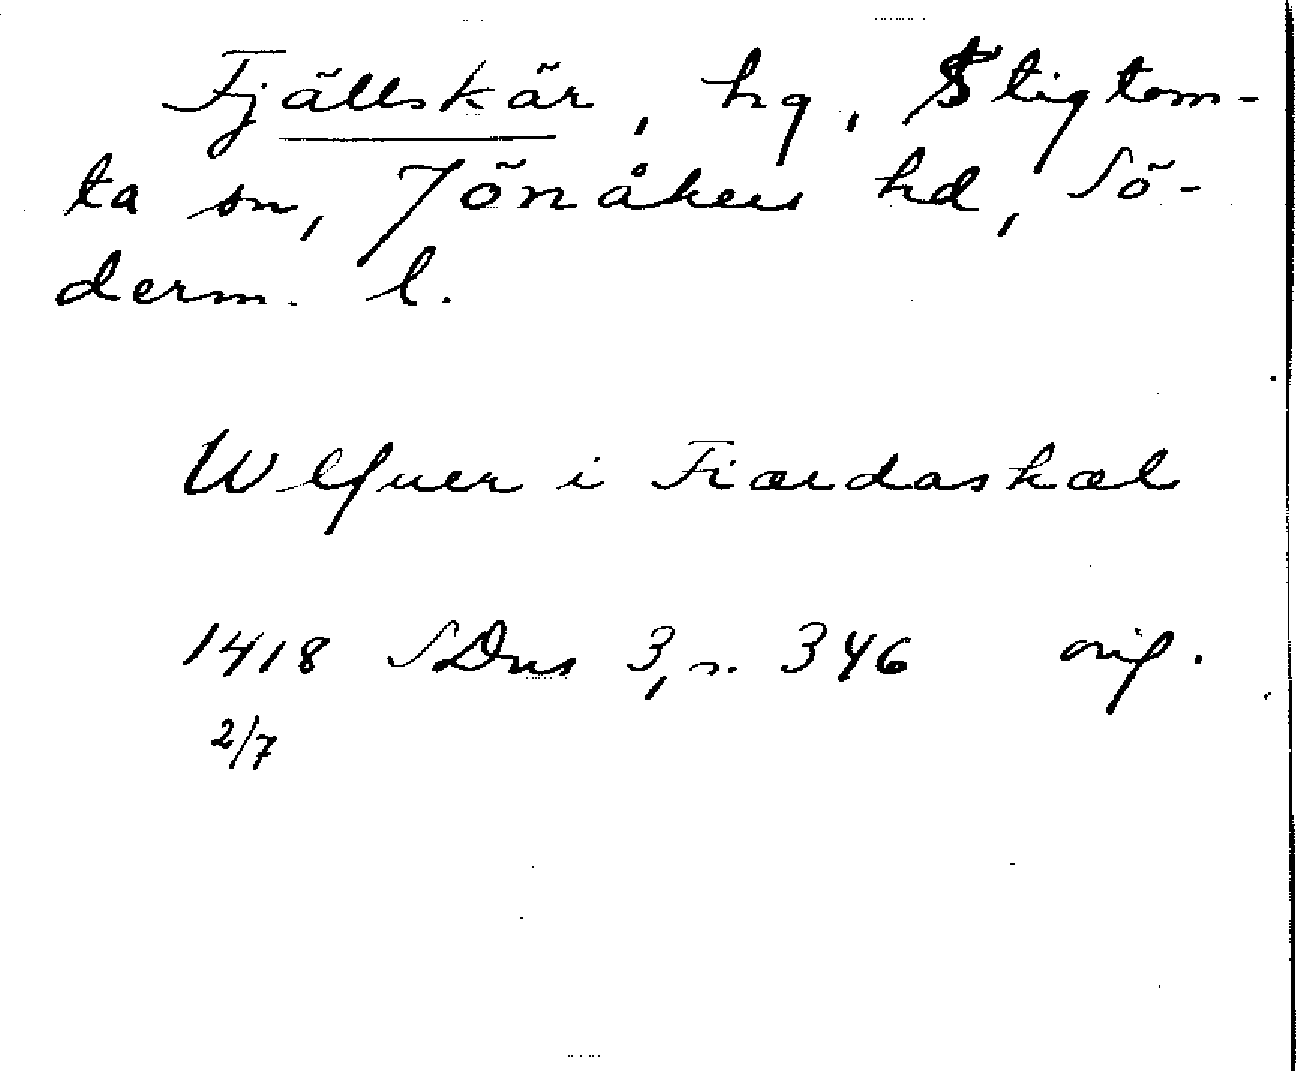 Fjällskär, hg, Stigtom-
ta sn, Jönåkers hd, Sö-
derm. l.
Wlfuer i Fiærdaskæl
1418 SDns 3, s. 346 orig.
2/7